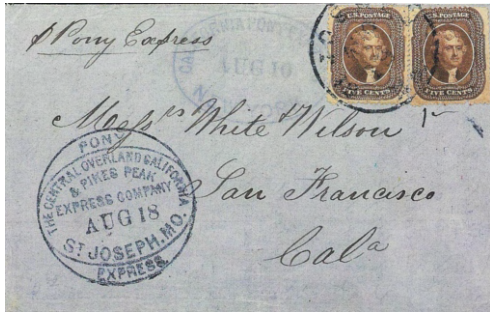 p Pony Express
U.S. POSTAGE
FIVE CENTS
U.S. POSTAGE
FIVE CENTS
AUG 10
Messrs White & Wilson
San Francisco
Cala
PONY
THE CENTRAL OVERLAND CALIFORNIA
& PIKES PEAK
EXPRESS COMPANY
AUG 18
ST JOSEPH, MO.
EXPRESS